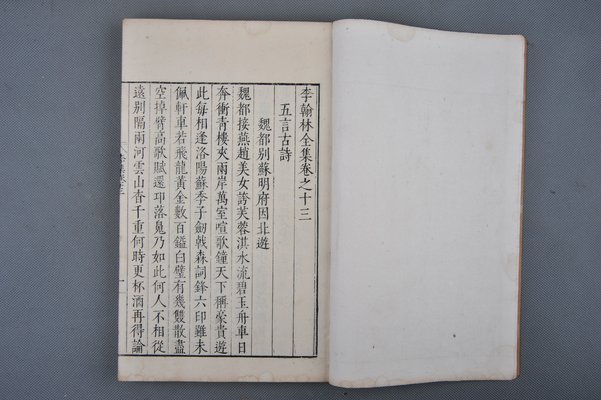 李翰林全集卷之十三
五言古詩
魏都別蘇明府因北遊
魏都接燕趙美女誇芙蓉淇水流碧玉舟車日
奔衝青樓夾兩岸萬室喧歌鐘天下稱豪貴遊
此每相逢洛陽蘇季子劒戟森詞鋒六印雖未
佩軒車若飛龍黃金數百鎰白璧有幾雙散盡
空掉臂高歌賦還卭落魄乃如此何人不相從
遠別隔兩河雲山杳千重何時更杯酒再得論